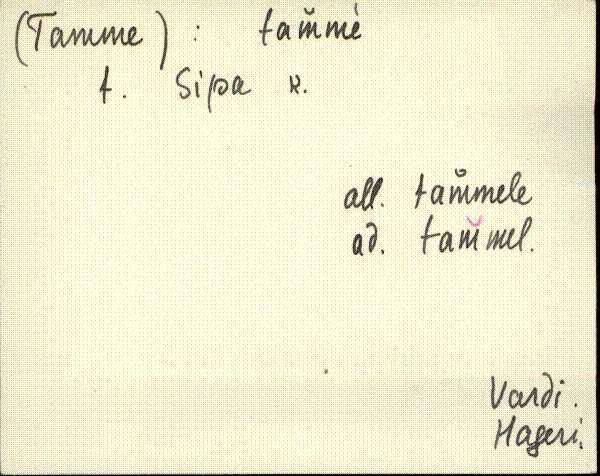 (Tamme) : tam̆mè
t. Sipa k.
all. tam̆mele
ad. tam̆mel.
Vardi.
Hageri.